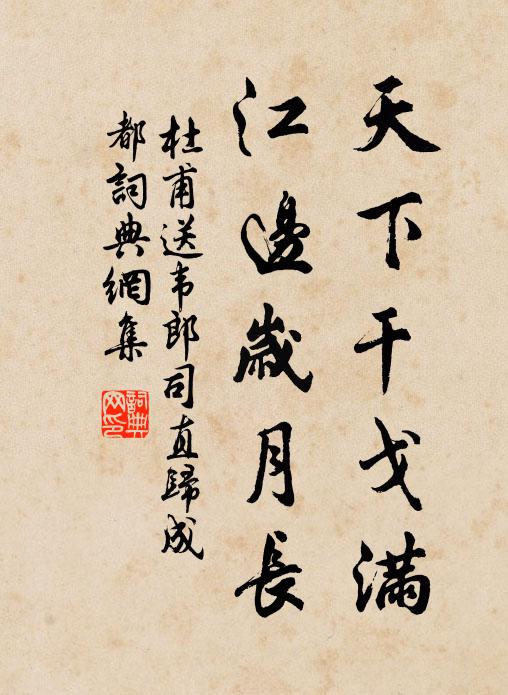 天下干戈滿
江邊歲月長
杜甫送韦郎司直歸成
都詞典網集
詞典
网印